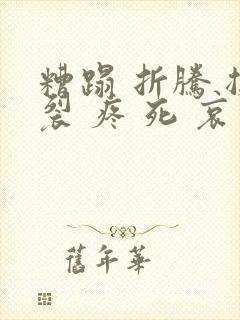 糟蹋 折騰
裂 疼 死 哀
舊年華